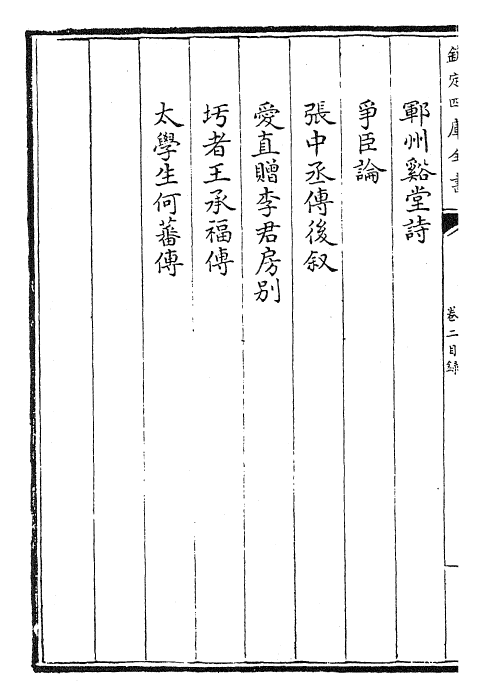 欽定四庫全書
卷二目録
鄆州谿堂詩
爭臣論
張中丞傳後叙
愛直贈李君房别
圬者王承福傳
太學生何蕃傳